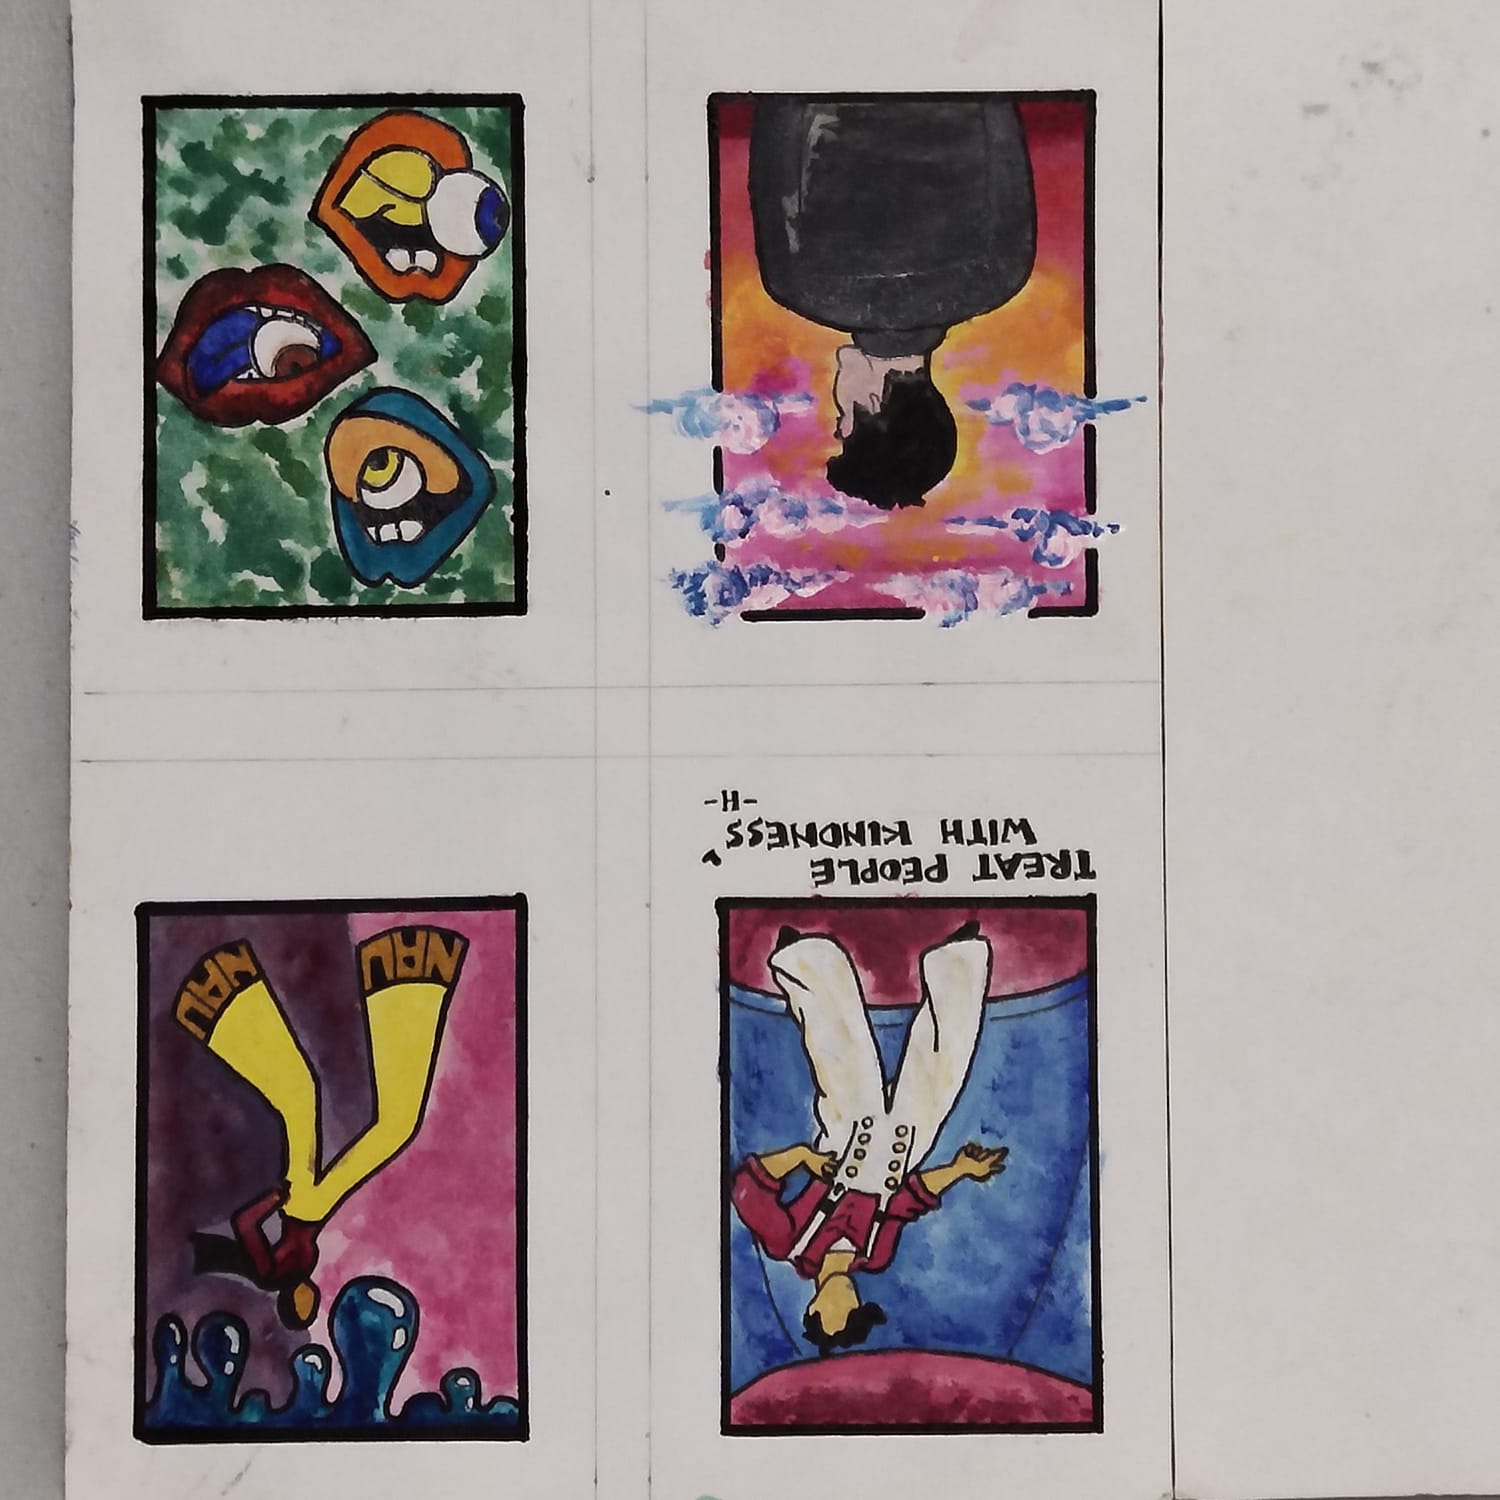 TREAT PEOPLE
WITH KINDNESS
-H-
NAU
NAU